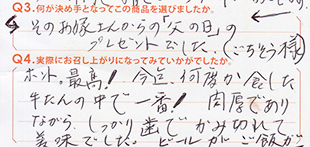 Q3.何が決め手となってこの商品を選びましたか。
そのお嫁さんからの「父の日」の
プレゼントでした。(ごちそう様)
Q4.実際にお召し上がりになってみていかがでしたか。
ホント。最高! 今迄、何度か食した
牛たんの中で一番! 肉厚であり
ながら、しっかり歯でかみ切れて
美味でした。ビールがご飯が